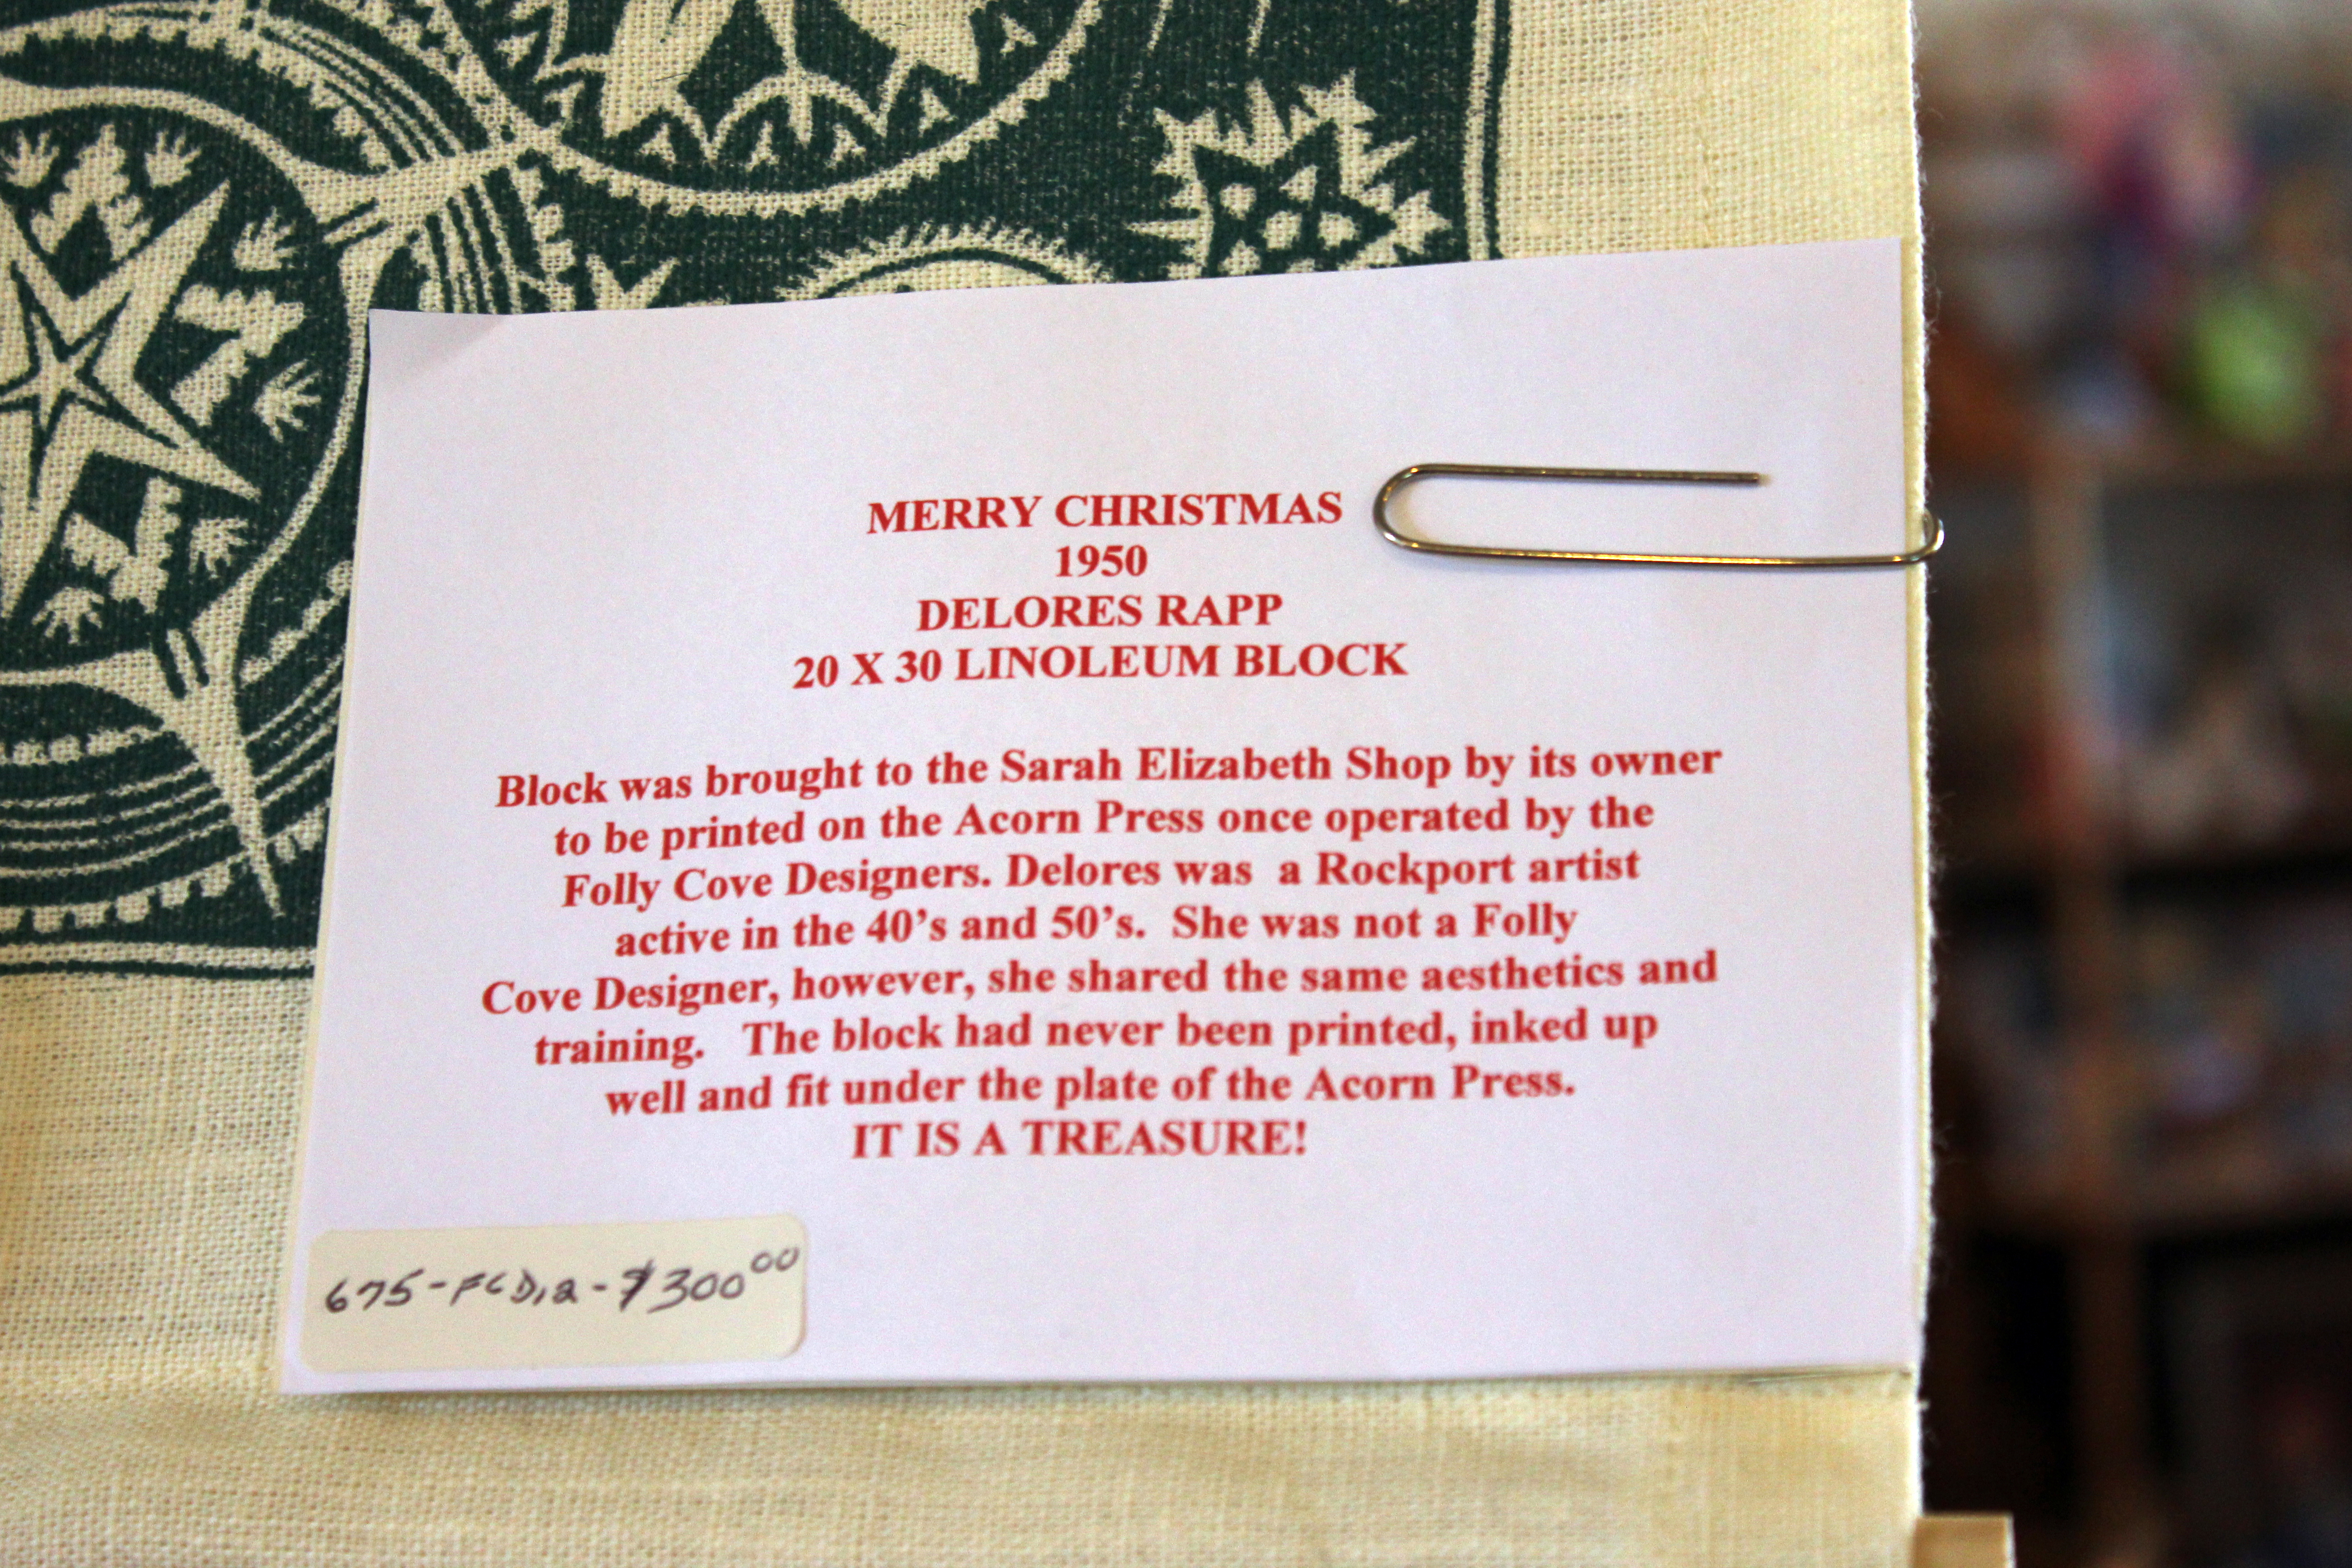 MERRY CHRISTMAS
1950
DELORES RAPP
20 X 30 LINOLEUM BLOCK
Block was brought to the Sarah Elizabeth Shop by its owner
to be printed on the Acorn Press once operated by the
Folly Cove Designers. Delores was a Rockport artist
active in the 40's and 50's. She was not a Folly
Cove Designer, however, she shared the same aesthetics and
training. The block had never been printed, inked up
well and fit under the plate of the Acorn Press.
IT IS A TREASURE!
675-FCD,2-$300⁰⁰